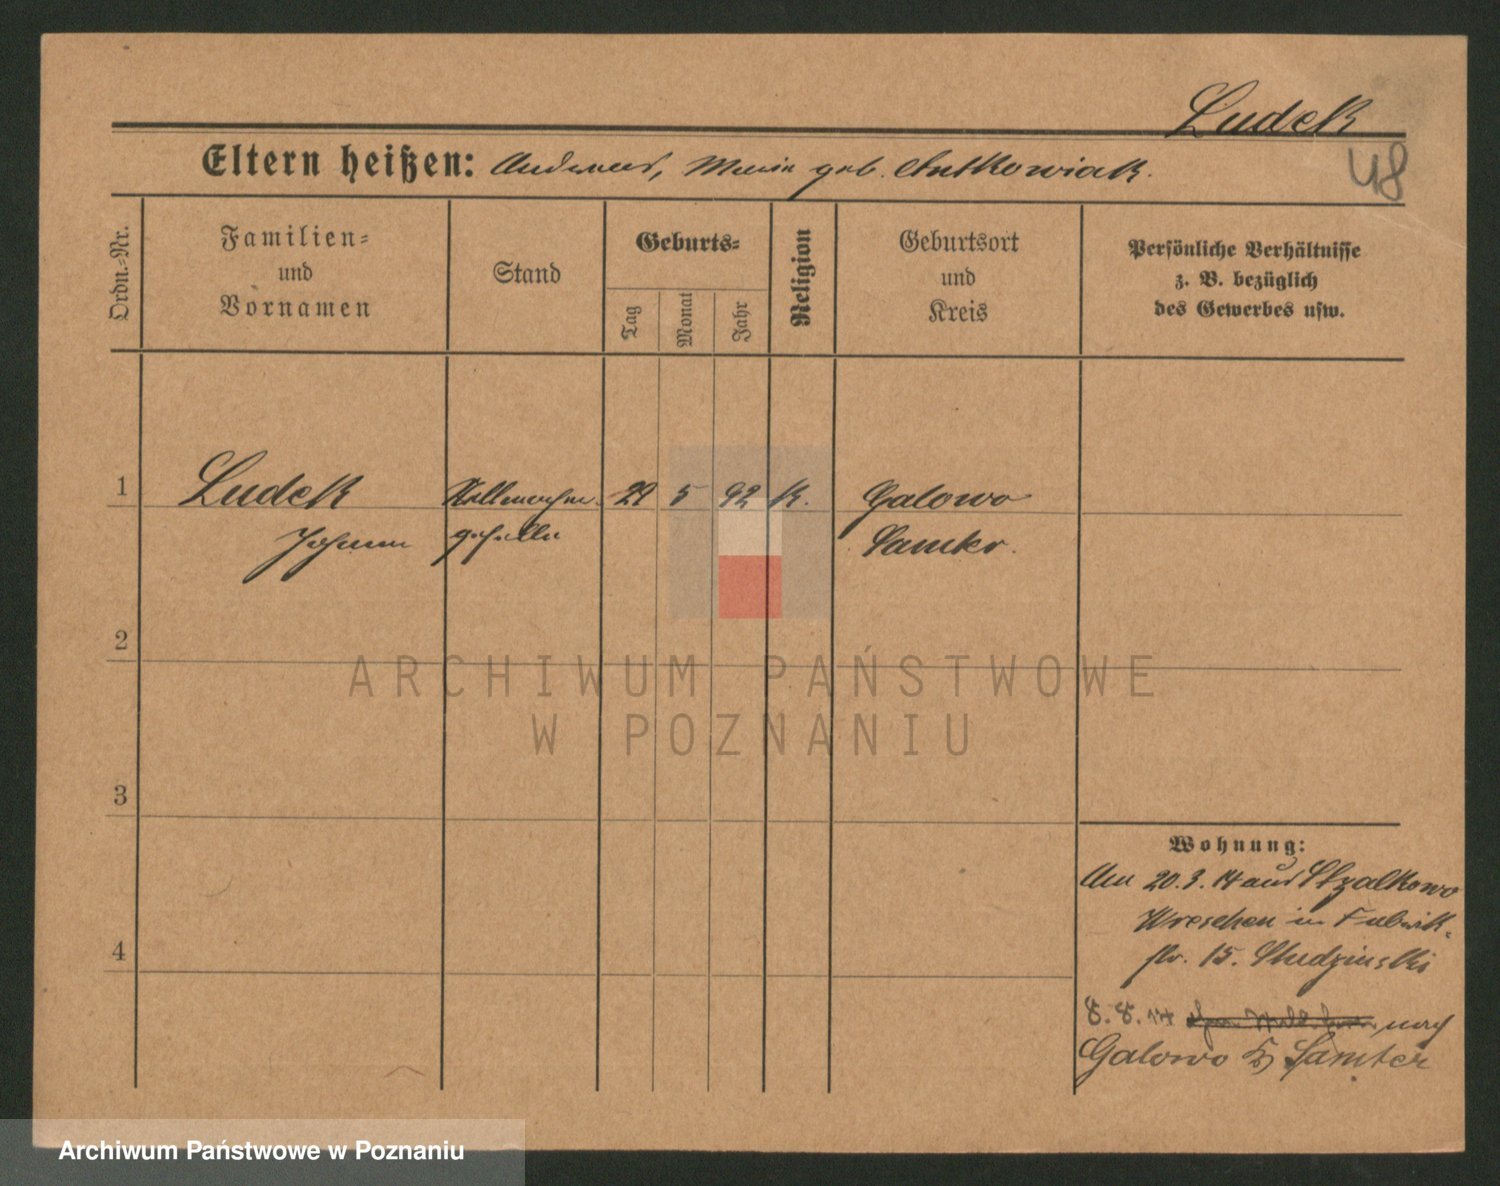 Ludek
48
Eltern heißen: Andreas, Maria geb. Antkowiak.
Ordn.-Nr.
Familien-
und
Vornamen
Stand
Geburts-
Tag
Monat
Jahr
Religion
Geburtsort
und
Kreis
Persönliche Verhältnisse
z. B. bezüglich
des Gewerbes usw.
1 Ludek Stellmacher- 29 5 92 K. Galowo
Johann geselle Samter.
2
3
4
Wohnung:
Am 20.3.14 aus Stzalkowo
Wreschen in Fabrik-
str. 15. Studzinski
8.8.14 nach
Galowo Kr Samter
ARCHIWUM PAŃSTWOWE
W POZNANIU
Archiwum Państwowe w Poznaniu